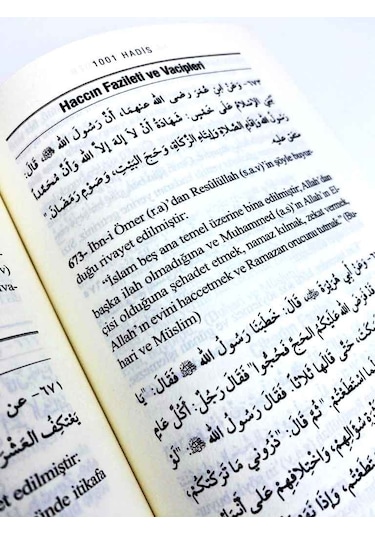 1001 HADİS
Haccın Fazileti ve Vacipleri
٦٧٣- وَعَنْ أَبِي عُمَرَ رضى الله عنهما، أَنَّ رَسُولَ اللهِ ﷺ قَالَ:
بُنِيَ الإِسْلَامُ عَلَى خَمْسٍ: شَهَادَةِ أَنْ لَا إِلَهَ إِلَّا اللهُ وَأَنَّ مُحَمَّدًا
رَسُولُ اللهِ وَإِقَامِ الصَّلَاةِ وَإِيتَاءِ الزَّكَاةِ، وَحَجِّ الْبَيْتِ، وَصَوْمِ رَمَضَانَ.
متفق عليه
673- Ibn-i Ömer (r.a)'dan Resûlüllah (s.a.v)'in şöyle buyur-
duğu rivayet edilmiştir:
"İslam beş ana temel üzerine bina edilmiştir. Allah'dan
başka ilah olmadığına ve Muhammed (a.s)'in Allah'ın El-
çisi olduğuna şehadet etmek, namaz kılmak, zekat vermek,
Allah'ın evini haccetmek ve Ramazan orucunu tutmak." (Bu-
hari ve Müslim)
وَعَنْ أَبِي هُرَيْرَةَ ﷺ، قَالَ: خَطَبَنَا رَسُولُ اللهِ ﷺ فَقَالَ: "يَا
قَدْ فَرَضَ اللهُ عَلَيْكُمُ الْحَجَّ فَحُجُّوا" فَقَالَ رَجُلٌ: أَكُلَّ عَامٍ
كَتَ، حَتَّى قَالَهَا ثَلَاثًا. فَقَالَ رَسُولُ اللهِ ﷺ: "لَوْ
مَا اسْتَطَعْتُمْ." ثُمَّ قَالَ: "ذَرُونِي مَا تَرَكْتُكُمْ،
سُؤَالِهِمْ، وَاخْتِلَافِهِمْ عَلَى
تَطَعْتُمْ، وَإِذَا
٦٧١- عن
يَعْتَكِفُ الْعَشْرَ
et edilmiştir:
ünde itikafa